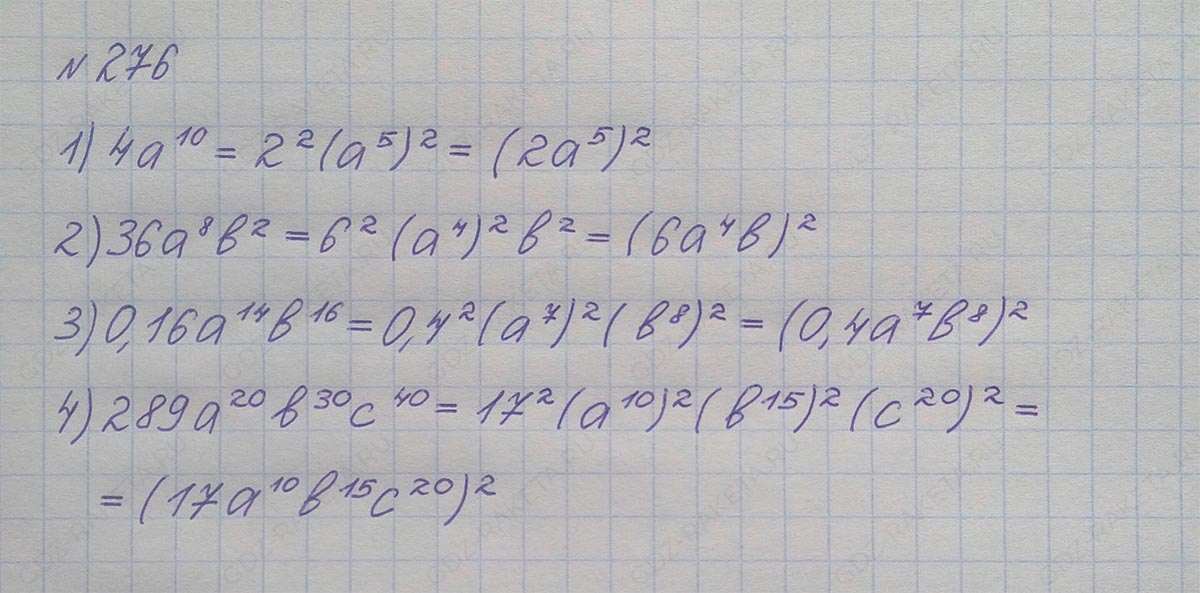 № 276
1) 4a¹⁰ = 2²(a⁵)² = (2a⁵)²
2) 36a⁸b² = 6²(a⁴)²b² = (6a⁴b)²
3) 0,16a¹⁴b¹⁶ = 0,4²(a⁷)²(b⁸)² = (0,4a⁷b⁸)²
4) 289a²⁰b³⁰c⁴⁰ = 17²(a¹⁰)²(b¹⁵)²(c²⁰)² =
= (17a¹⁰b¹⁵c²⁰)²
GDZ-RAKETA.RU